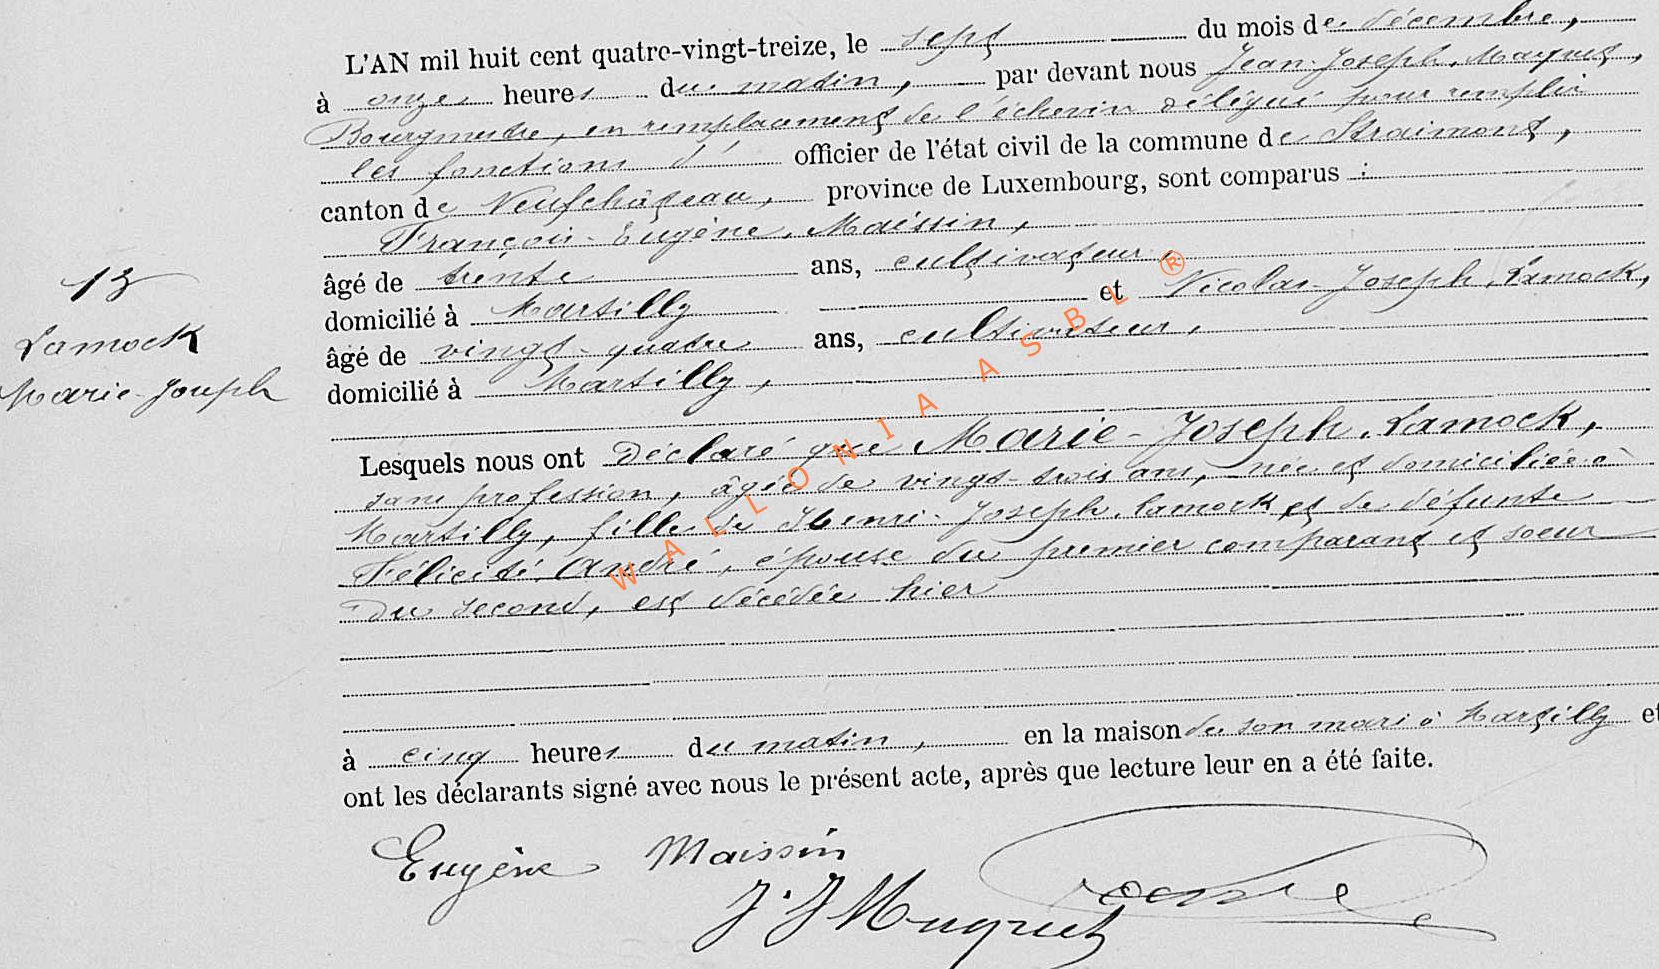 L'AN mil huit cent quatre-vingt-treize, le sept du mois de décembre,
à onze heures du matin, par devant nous Jean-Joseph Maquet,
Bourgmestre, en remplacement de l'échevin délégué pour remplir
les fonctions d' officier de l'état civil de la commune de Straimont,
canton de Neufchâteau, province de Luxembourg, sont comparus :
François-Eugène Maissin,
âgé de trente ans, cultivateur,
domicilié à Martilly et Nicolas-Joseph Lamock,
âgé de vingt-quatre ans, cultivateur,
domicilié à Martilly,
13
Lamock
Marie-Joseph
Lesquels nous ont déclaré que Marie-Joseph Lamock,
sans profession, âgée de vingt-trois ans, née et domiciliée à
Martilly, fille de Henri-Joseph Lamock et de défunte
Félicité André, épouse du premier comparant et soeur
du second, est décédée hier
à cinq heures du matin, en la maison de son mari à Martilly et
ont les déclarants signé avec nous le présent acte, après que lecture leur en a été faite.
Eugène Maissin
J. J. Maquet
WALLONIA ASBL ®